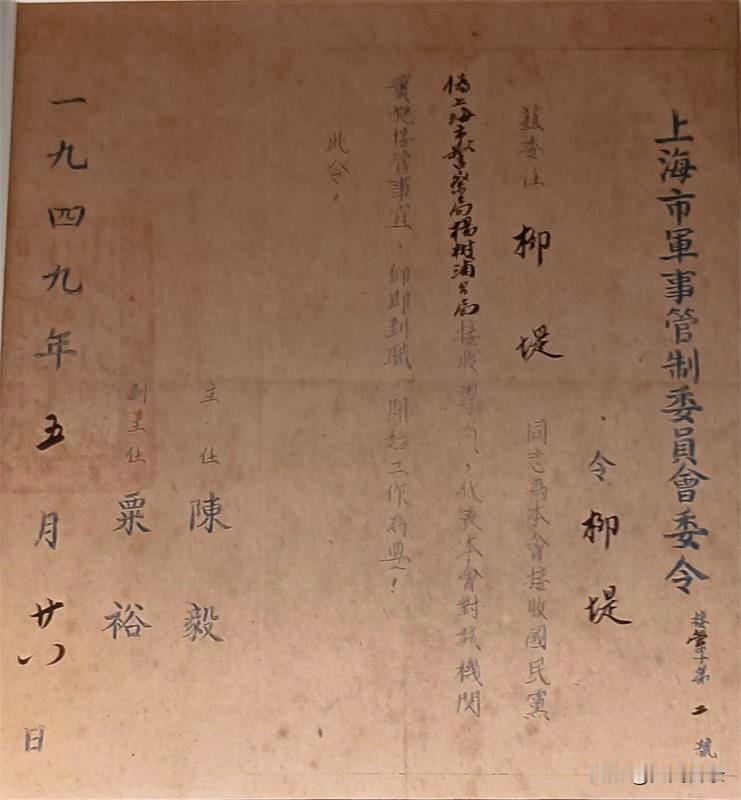 上海市軍事管制委員會委令
接管字第二號
令柳堤
茲委任柳堤同志為本會接收國民黨
偽上海市警察局楊樹浦分局接收專員，代表本會對該機關
實施接管事宜，仰即到職，開始工作為要！
此令。
主任陳毅
副主任粟裕
一九四九年五月廿八日